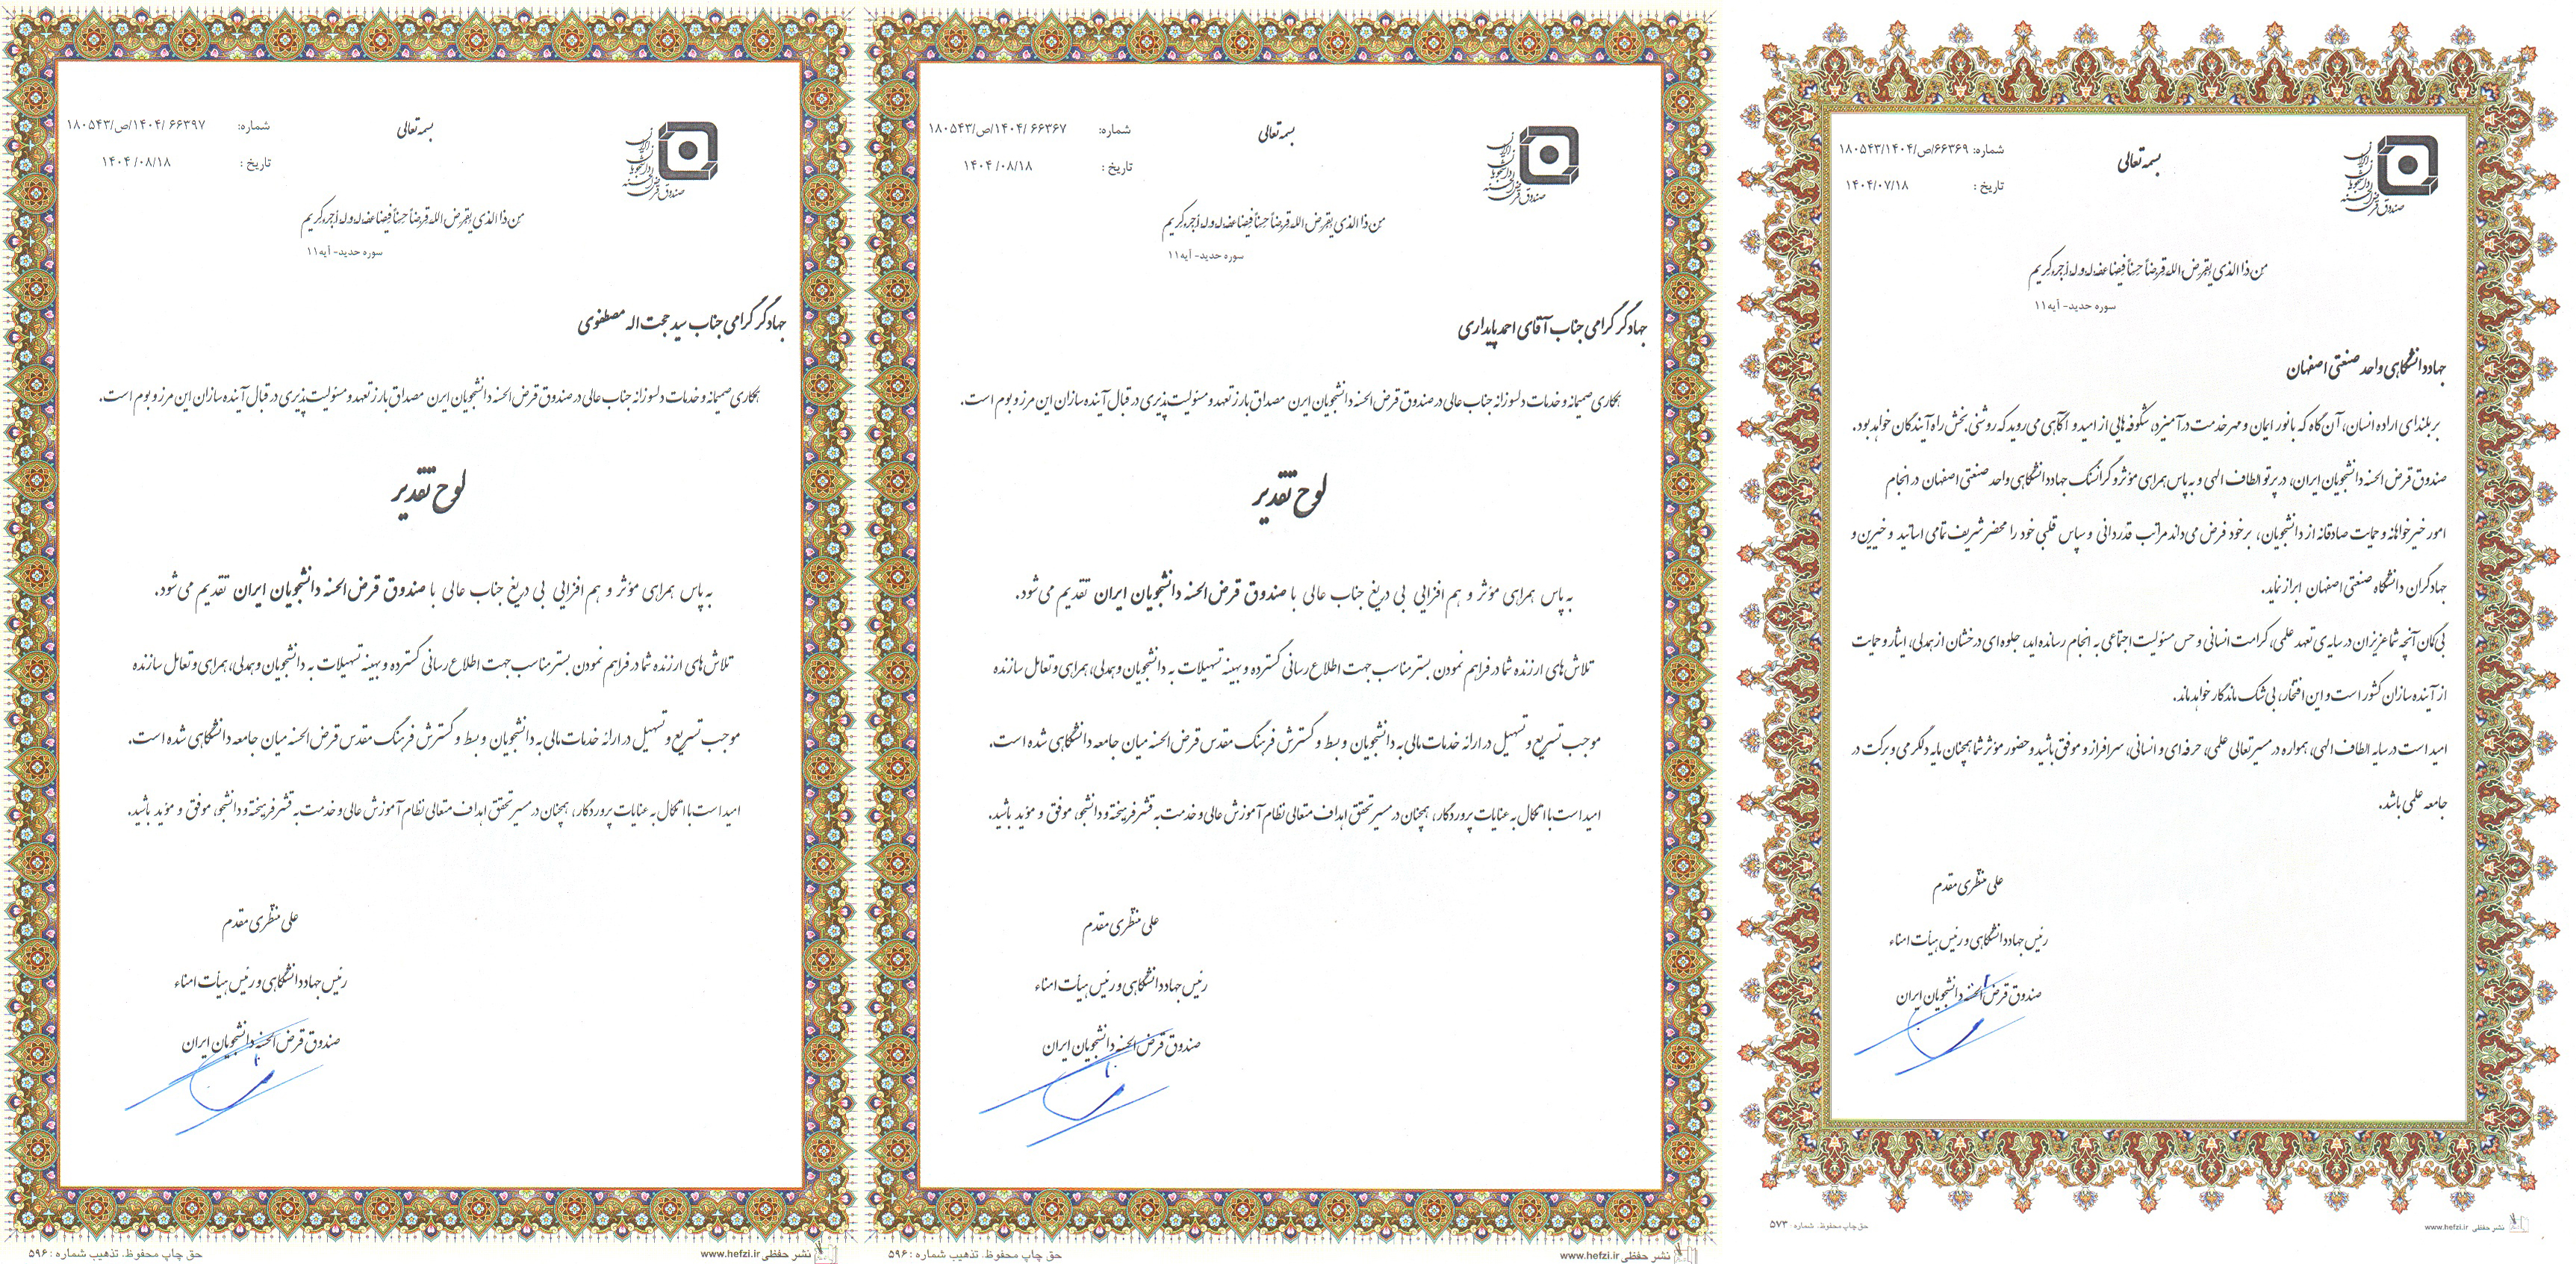 بسمه تعالی
شماره: ۶۶۳۶۹/ص/۱۸۰۵۴۳/۱۴۰۴
تاریخ : ۱۴۰۴/۰۷/۱۸
صندوق قرض الحسنه دانشجویان ایران
من ذا الذی یقرض الله قرضاً حسناً فیضاعفه له و له أجر کریم
سوره حدید- آیه۱۱
جهاددانشگاهی واحد صنعتی اصفهان
بر بلندای اراده انسان، آن گاه که با نور ایمان و مهر خدمت درآمیزد، شکوفه هایی از امید و آگاهی می روید که روشنی بخش راه آیندگان خواهد بود.
صندوق قرض الحسنه دانشجویان ایران، در پرتو الطاف الهی و به پاس همراهی مؤثر و گرانسنگ جهاددانشگاهی واحد صنعتی اصفهان در انجام
امور خیرخواهانه و حمایت صادقانه از دانشجویان، بر خود فرض می داند مراتب قدردانی و سپاس قلبی خود را محضر شریف تمامی اساتید و خیرین و
جهادگران دانشگاه صنعتی اصفهان ابراز نماید.
بی گمان آنچه شما عزیزان در سایه ی تعهد علمی، کرامت انسانی و حس مسئولیت اجتماعی به انجام رسانده اید، جلوه ای درخشان از همدلی، ایثار و حمایت
از آینده سازان کشور است و این افتخار، بی شک ماندگار خواهد ماند.
امید است در سایه الطاف الهی، همواره در مسیر تعالی علمی، حرفه ای و انسانی، سرافراز و موفق باشید و حضور مؤثر شما همچنان مایه دلگرمی و برکت در
جامعه علمی باشد.
علی منتظری مقدم
رئیس جهاددانشگاهی و رئیس هیأت امناء
صندوق قرض الحسنه دانشجویان ایران
نشر حفظی www.hefzi.ir
حق چاپ محفوظ. شماره ۵۷۳
بسمه تعالی
شماره: ۶۶۳۶۷ /۱۴۰۴/ص/۱۸۰۵۴۳
تاریخ : ۱۴۰۴/۰۸/۱۸
صندوق قرض الحسنه دانشجویان ایران
من ذا الذی یقرض الله قرضاً حسناً فیضاعفه له و له أجر کریم
سوره حدید- آیه۱۱
جهادگر گرامی جناب آقای احمد پایداری
همکاری صمیمانه و خدمات دلسوزانه جناب عالی در صندوق قرض الحسنه دانشجویان ایرن مصداق بارز تعهد و مسئولیت پذیری در قبال آینده سازان این مرز و بوم است.
لوح تقدیر
به پاس همراهی مؤثر و هم افزایی بی دریغ جناب عالی با صندوق قرض الحسنه دانشجویان ایران تقدیم می شود.
تلاش های ارزنده شما در فراهم نمودن بستر مناسب جهت اطلاع رسانی گسترده و بهینه تسهیلات به دانشجویان و همدلی، همراهی و تعامل سازنده
موجب تسریع و تسهیل در ارائه خدمات مالی به دانشجویان و بسط و گسترش فرهنگ مقدس قرض الحسنه میان جامعه دانشگاهی شده است.
امید است با اتکال به عنایات پروردگار، همچنان در مسیر تحقق اهداف متعالی نظام آموزش عالی و خدمت به قشر فرهیخته و دانشجو، موفق و مؤید باشید.
علی منتظری مقدم
رئیس جهاددانشگاهی و رئیس هیأت امناء
صندوق قرض الحسنه دانشجویان ایران
نشر حفظی www.hefzi.ir
حق چاپ محفوظ. تذهیب شماره : ۵۹۶
بسمه تعالی
شماره: ۶۶۳۹۷ /۱۴۰۴/ص/۱۸۰۵۴۳
تاریخ : ۱۴۰۴/۰۸/۱۸
صندوق قرض الحسنه دانشجویان ایران
من ذا الذی یقرض الله قرضاً حسناً فیضاعفه له و له أجر کریم
سوره حدید- آیه۱۱
جهادگر گرامی جناب سید حجت اله مصطفوی
همکاری صمیمانه و خدمات دلسوزانه جناب عالی در صندوق قرض الحسنه دانشجویان ایرن مصداق بارز تعهد و مسئولیت پذیری در قبال آینده سازان این مرز و بوم است.
لوح تقدیر
به پاس همراهی مؤثر و هم افزایی بی دریغ جناب عالی با صندوق قرض الحسنه دانشجویان ایران تقدیم می شود.
تلاش های ارزنده شما در فراهم نمودن بستر مناسب جهت اطلاع رسانی گسترده و بهینه تسهیلات به دانشجویان و همدلی، همراهی و تعامل سازنده
موجب تسریع و تسهیل در ارائه خدمات مالی به دانشجویان و بسط و گسترش فرهنگ مقدس قرض الحسنه میان جامعه دانشگاهی شده است.
امید است با اتکال به عنایات پروردگار، همچنان در مسیر تحقق اهداف متعالی نظام آموزش عالی و خدمت به قشر فرهیخته و دانشجو، موفق و مؤید باشید.
علی منتظری مقدم
رئیس جهاددانشگاهی و رئیس هیأت امناء
صندوق قرض الحسنه دانشجویان ایران
نشر حفظی www.hefzi.ir
حق چاپ محفوظ. تذهیب شماره : ۵۹۶